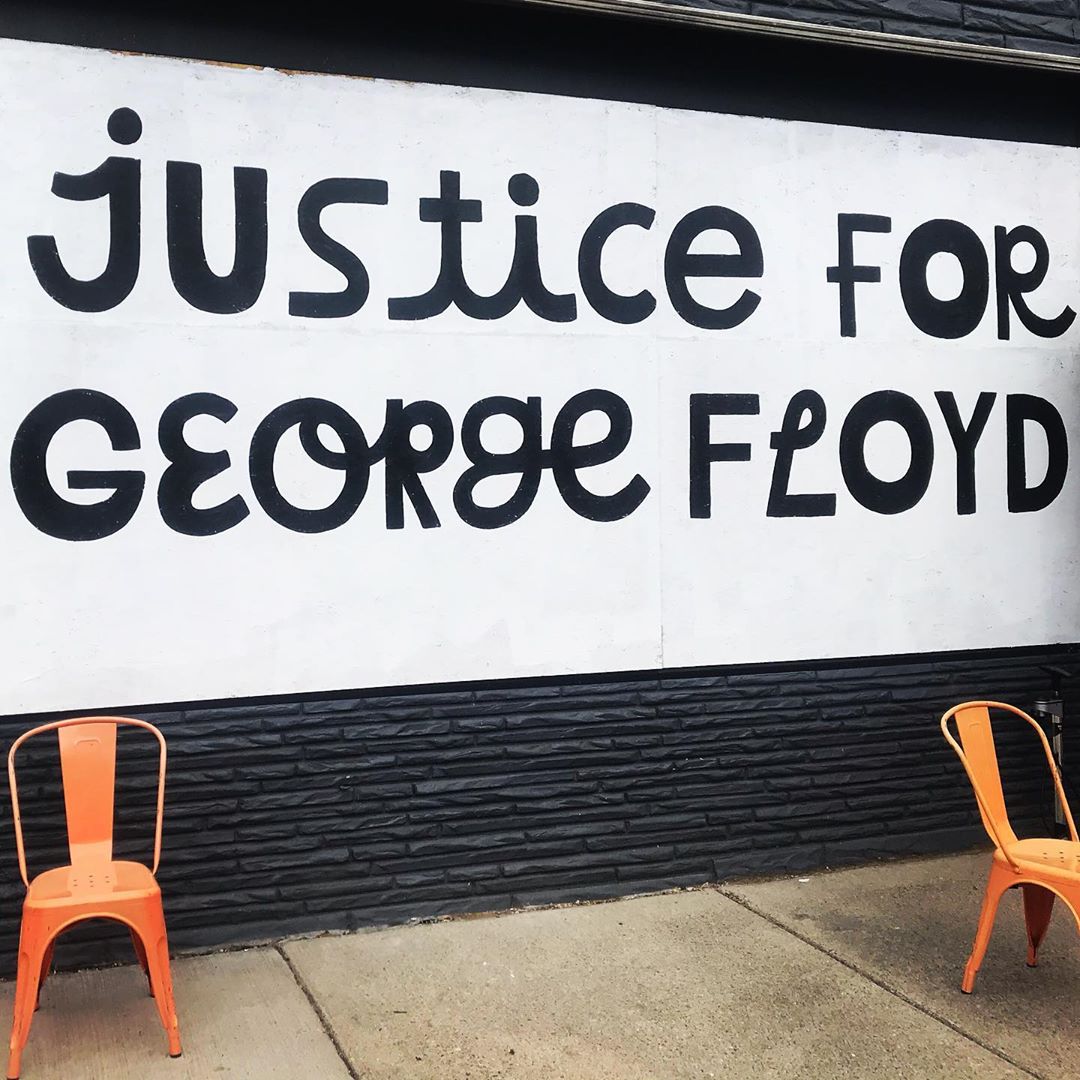 justice FOR
GEORge FLOYD